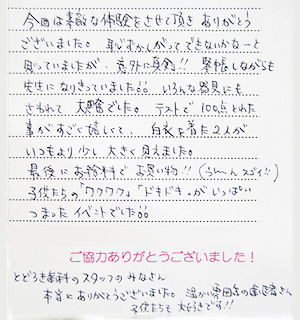 今回は素敵な体験をさせて頂き ありがとう
ございました。 恥ずかしがって できないかなーと
思っていましたが、意外に真剣!! 緊張しながらも
先生になりきっていました♪♪ いろんな器具にも
さわれて 大興奮でした。 テストで 100点とれた
事がすごく嬉しくて、白衣を着た2人が
いつもより少し 大きく見えました。
最後にお給料で お買い物!! (うーん スゴイ!!)
子供たちの「ワクワク」「ドキドキ」が いっぱい
つまった イベントでした♪♪
ご協力ありがとうございました!
とどろき歯科のスタッフの みなさん
本当に ありがとうございました。温かい雰囲気の歯医者さん
子供たちも 大好きです!!